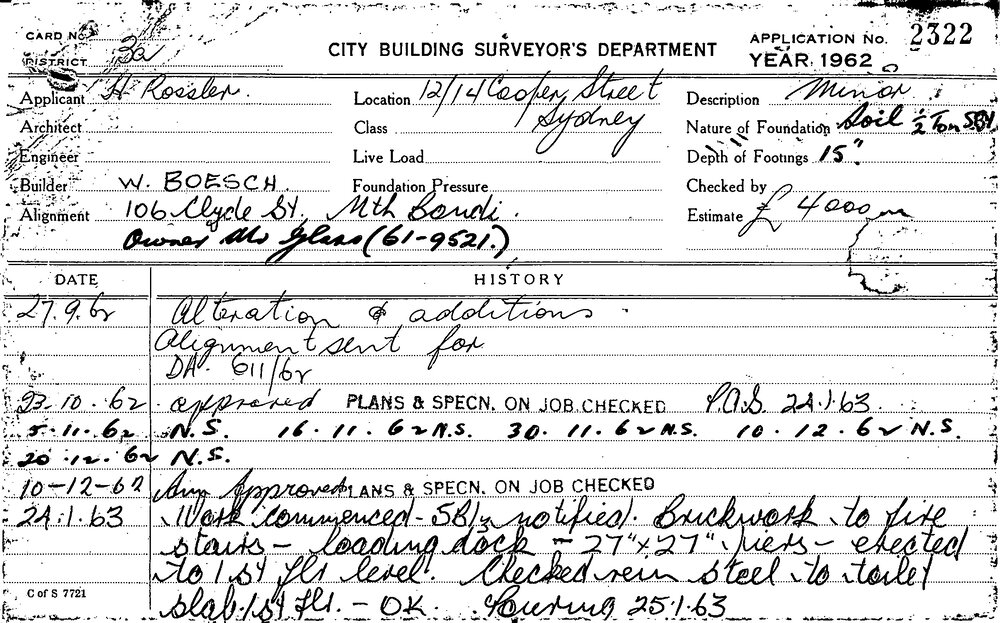 CARD No.
DISTRICT 3a
CITY BUILDING SURVEYOR'S DEPARTMENT
APPLICATION No. 2322
YEAR 1962
Applicant H Rossler. Location 12/14 Cooper Street Description Minor
Architect Class Sydney Nature of Foundation Soil ½ Ton SBI,
Engineer Live Load Depth of Footings 15".
Builder W. BOESCH. Foundation Pressure Checked by
Alignment 106 Clyde St, Nth Bondi. Estimate £ 4000
Owner Mr Glass (61-9521.)
DATE HISTORY
27.9.62 Alteration & additions
Alignment sent for
DA. 611/62
23.10.62 approved PLANS & SPECN. ON JOB CHECKED P.A.S. 24.1.63
5.11.62 N.S. 16.11.62 N.S. 30.11.62 N.S. 10.12.62 N.S.
20.12.62 N.S.
10-12-62 Approved PLANS & SPECN. ON JOB CHECKED
24.1.63 Work commenced - SBI notified. Brickwork to fire
stairs - loading dock - 27" x 27" piers - erected
to 1st flr level. Checked rein steel to toilet
slab 1st flr. - OK. Pouring 25.1.63
C of S 7721